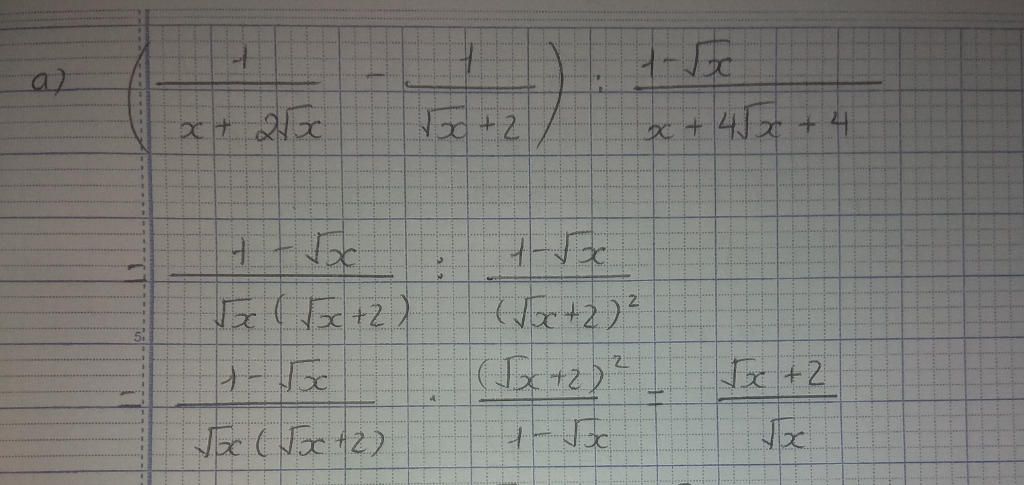 a) (1/(x + 2√x) - 1/(√x + 2)) : (1 - √x)/(x + 4√x + 4)
= (1 - √x)/(√x(√x + 2)) : (1 - √x)/(√x + 2)²
5
= (1 - √x)/(√x(√x + 2)) . (√x + 2)²/(1 - √x) = (√x + 2)/√x